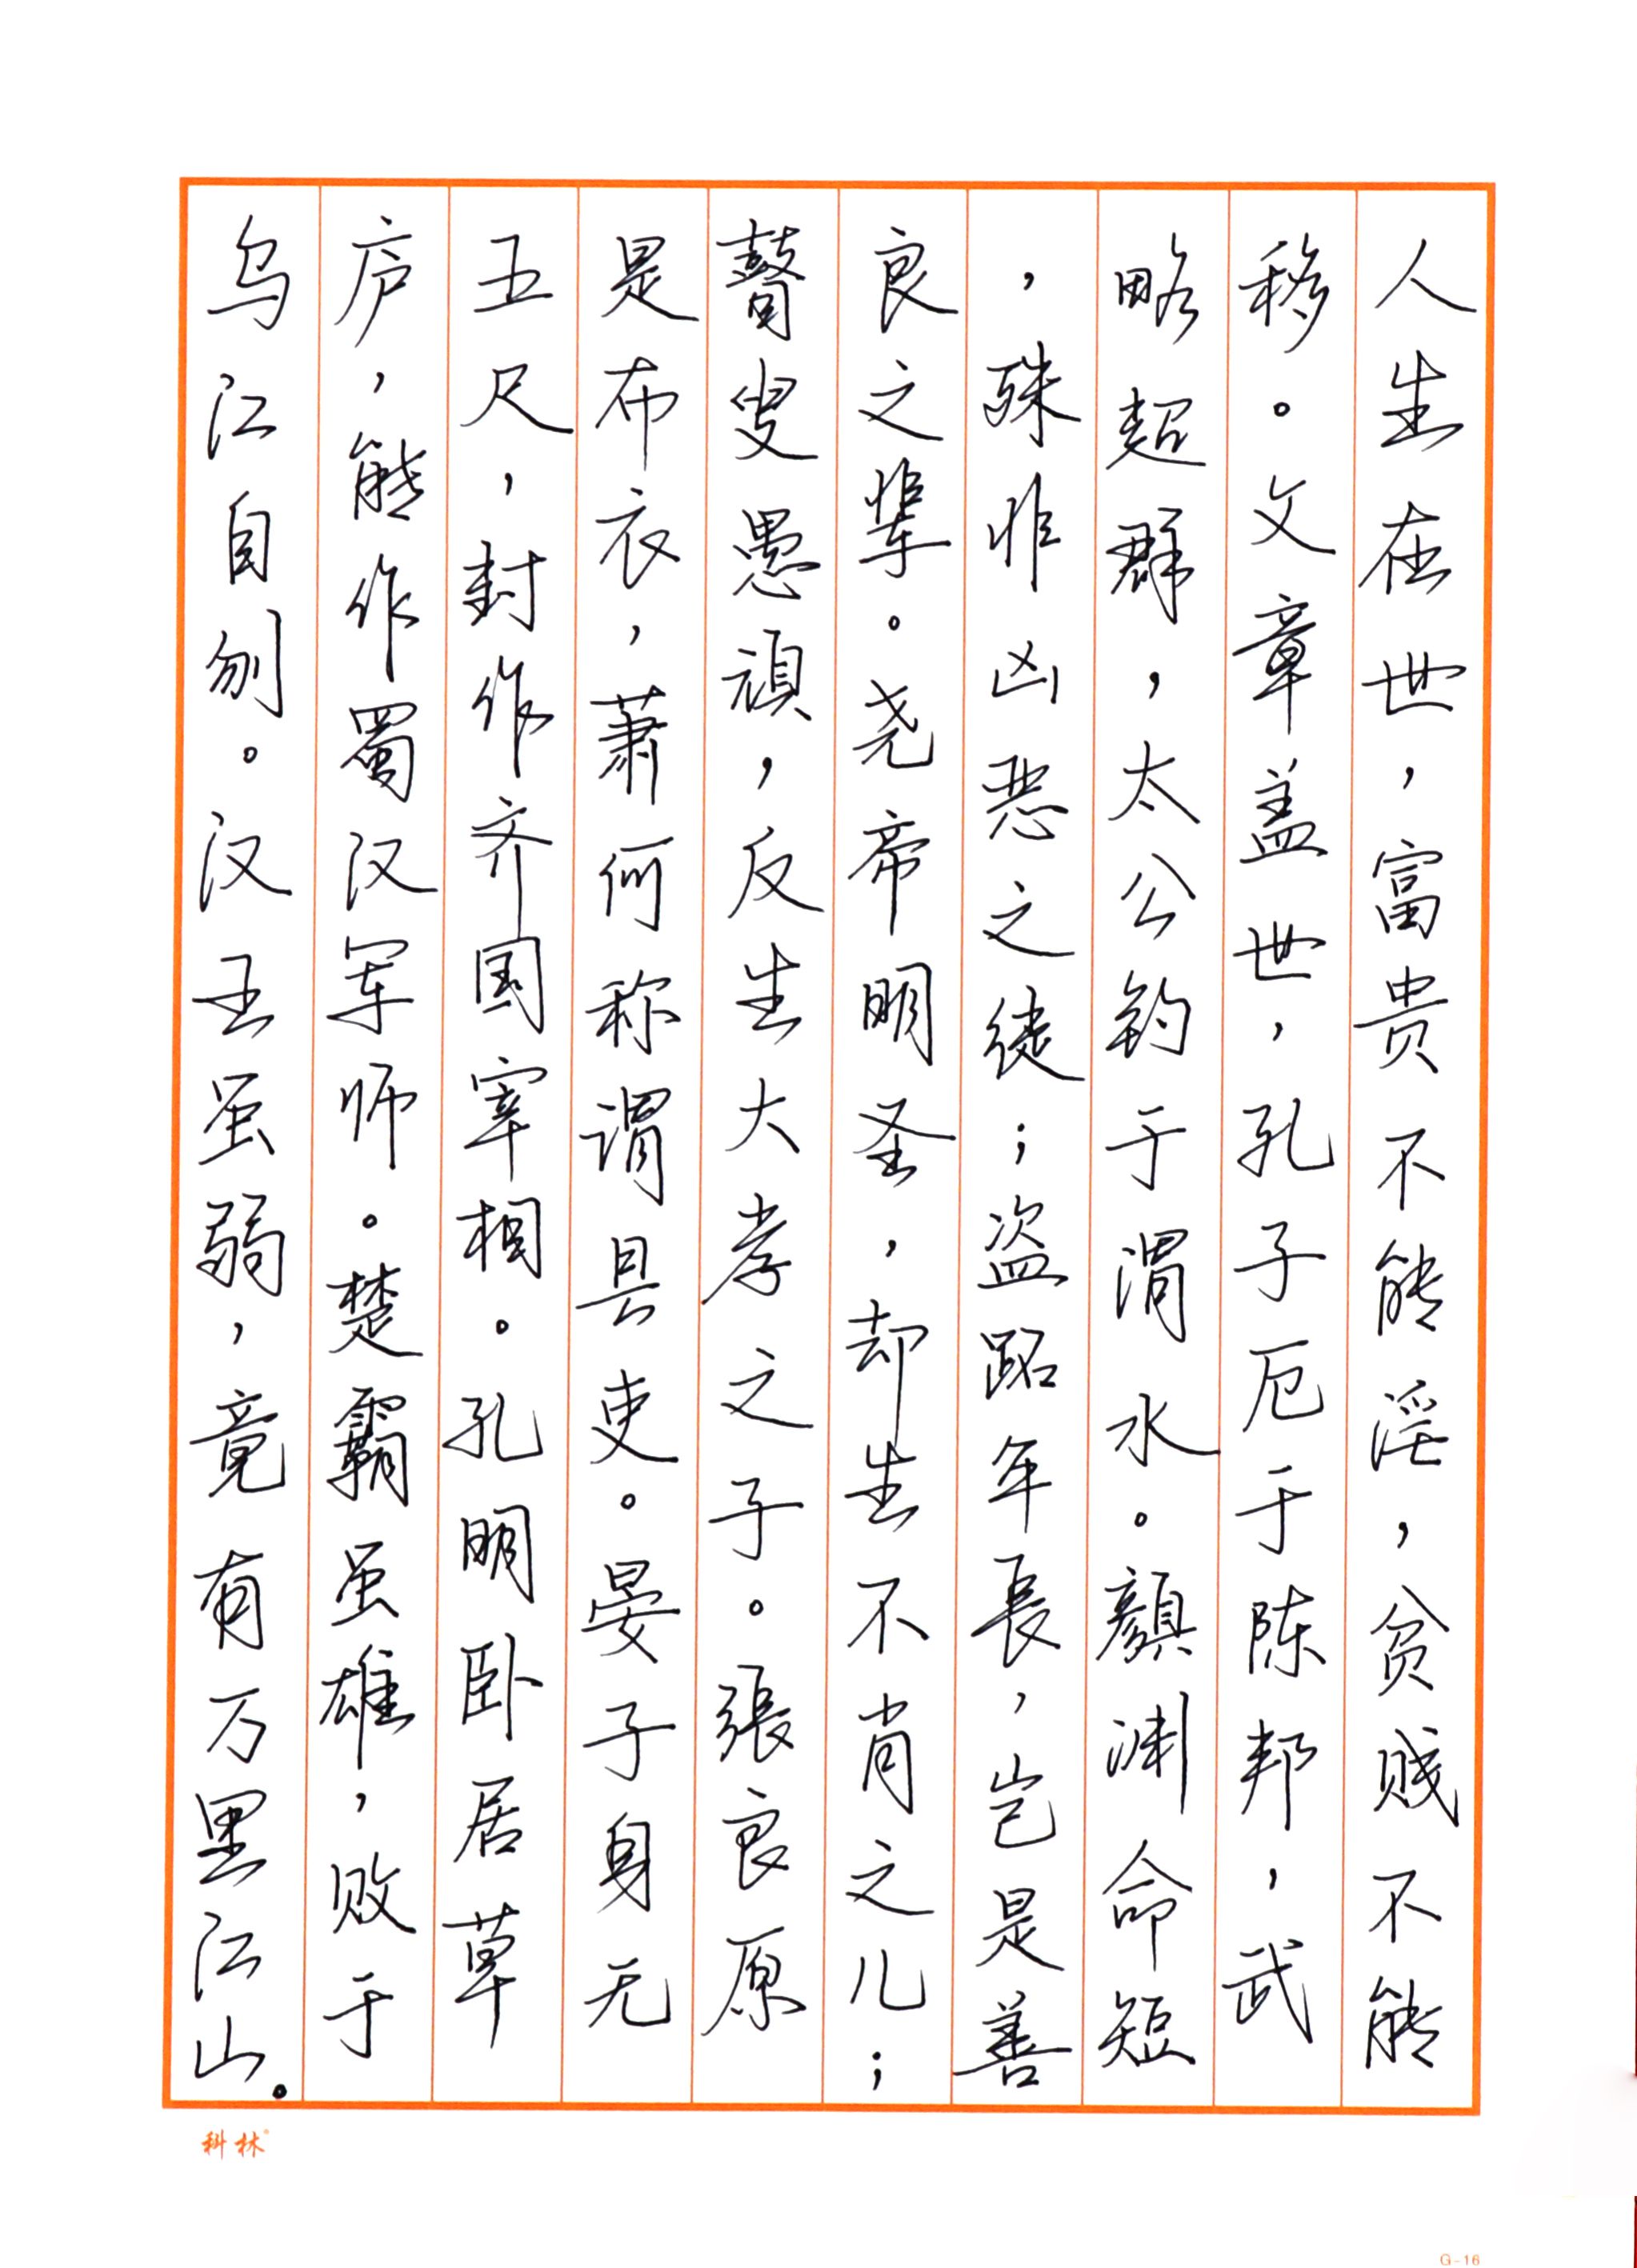 人生在世，富贵不能淫，贫贱不能
移。文章盖世，孔子厄于陈邦，武
略超群，太公钓于渭水。顔渊命短
，殊非凶恶之徒；盗跖年長，岂是善
良之辈。尧帝明圣，却生不肖之儿；
瞽叟愚頑，反生大孝之子。張良原
是布衣，萧何称谓县吏。晏子身无
五尺，封作齐国宰相。孔明卧居草
庐，能作蜀汉军师。楚霸虽雄，败于
乌江自刎。汉王虽弱，竟有万里江山。
科林
G-16